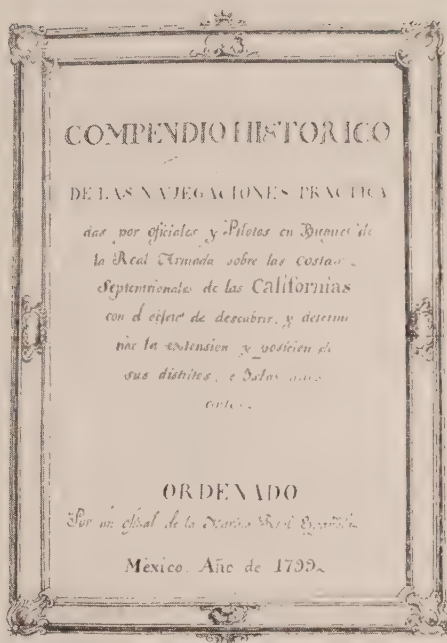 COMPENDIO HISTORICO
DE LAS NAVEGACIONES PRACTICA
das por oficiales y Pilotos en Buques de
la Real Armada sobre las costas
Septentrionales de las Californias
con el objeto de descubrir, y determi
nar la extension y posicion de
sus distritos, e Islas
ORDENADO
Por un oficial de la Marina Real Española
México. Año de 1799.